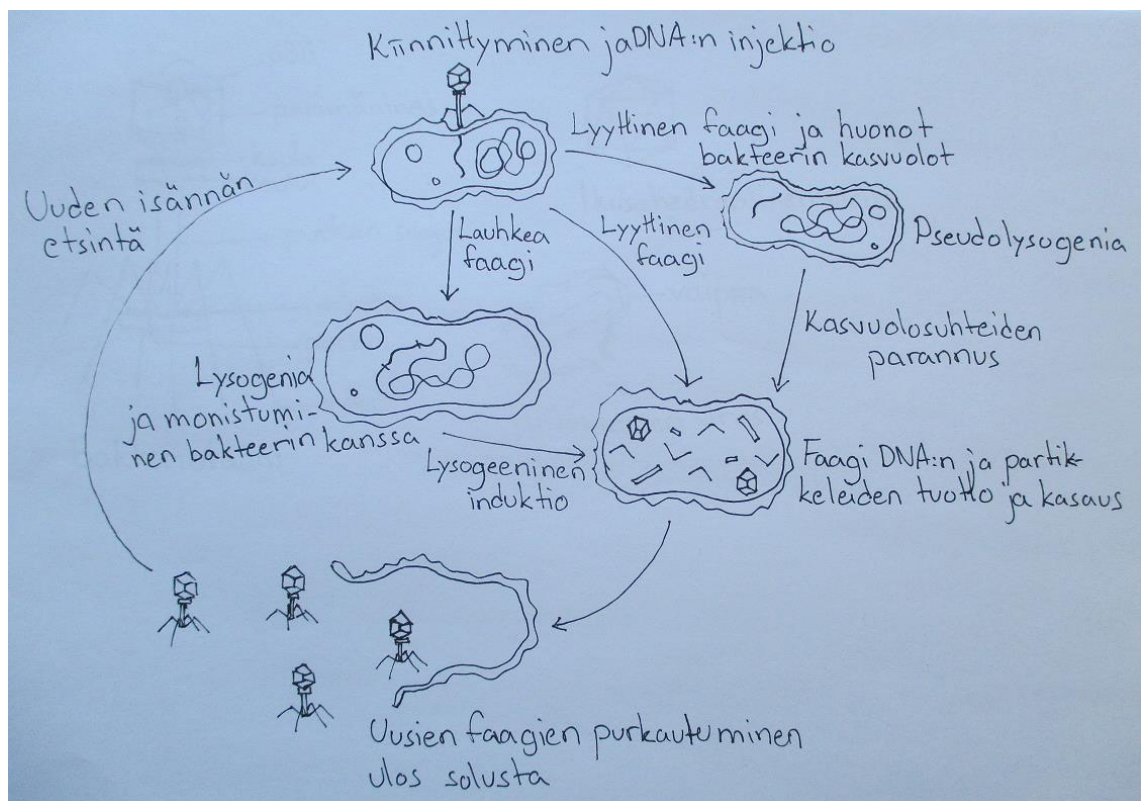 Kiinnittyminen ja DNA:n injektio
Lyyttinen faagi ja huonot
bakteerin kasvuolot
Uuden isännän
etsintä
Lauhkea
faagi
Lyyttinen
faagi
Pseudolysogenia
Kasvuolosuhteiden
parannus
Lysogenia
ja monistumi-
nen bakteerin kanssa
Lysogeeninen
induktio
Faagi DNA:n ja partik-
keleiden tuotto ja kasaus
Uusien faagien purkautuminen
ulos solusta